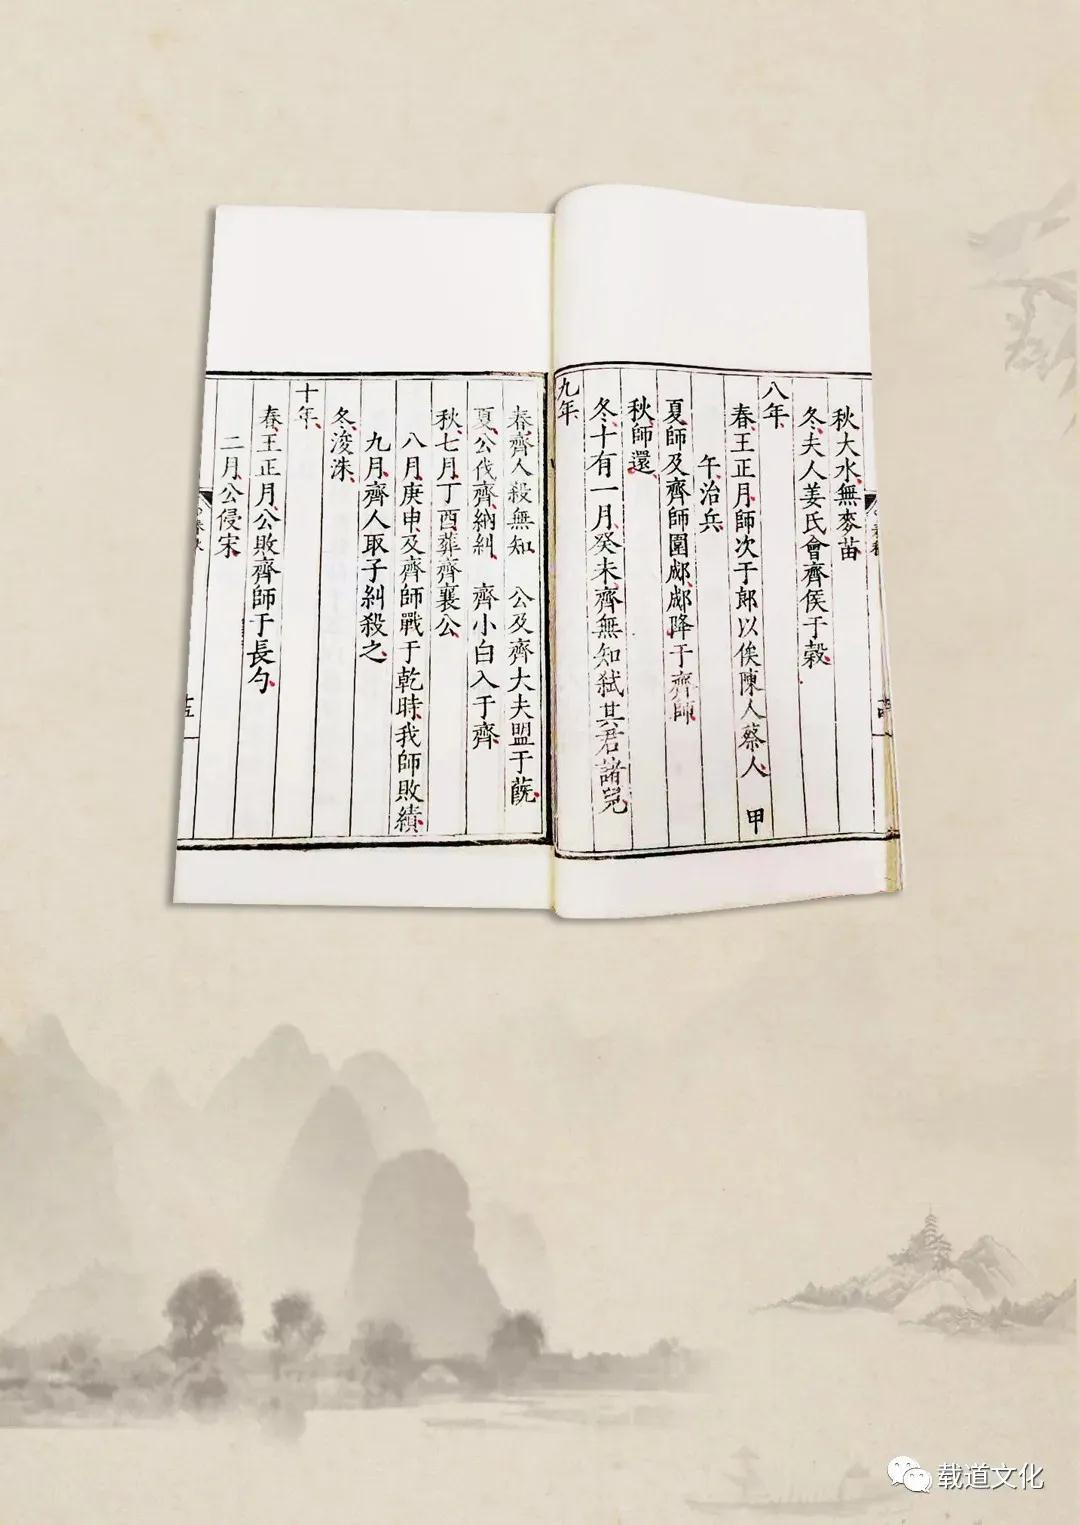 秋大水無麥苗
冬夫人姜氏會齊侯于穀
八年
春王正月師次于郎以俟陳人蔡人 甲
午治兵
夏師及齊師圍郕郕降于齊師
秋師還
冬十有一月癸未齊無知弑其君諸兒
九年
春齊人殺無知 公及齊大夫盟于蔇
夏公伐齊納糾 齊小白入于齊
秋七月丁酉葬齊襄公
八月庚申及齊師戰于乾時我師敗績
九月齊人取子糾殺之
冬浚洙
十年
春王正月公敗齊師于長勺
二月公侵宋
载道文化